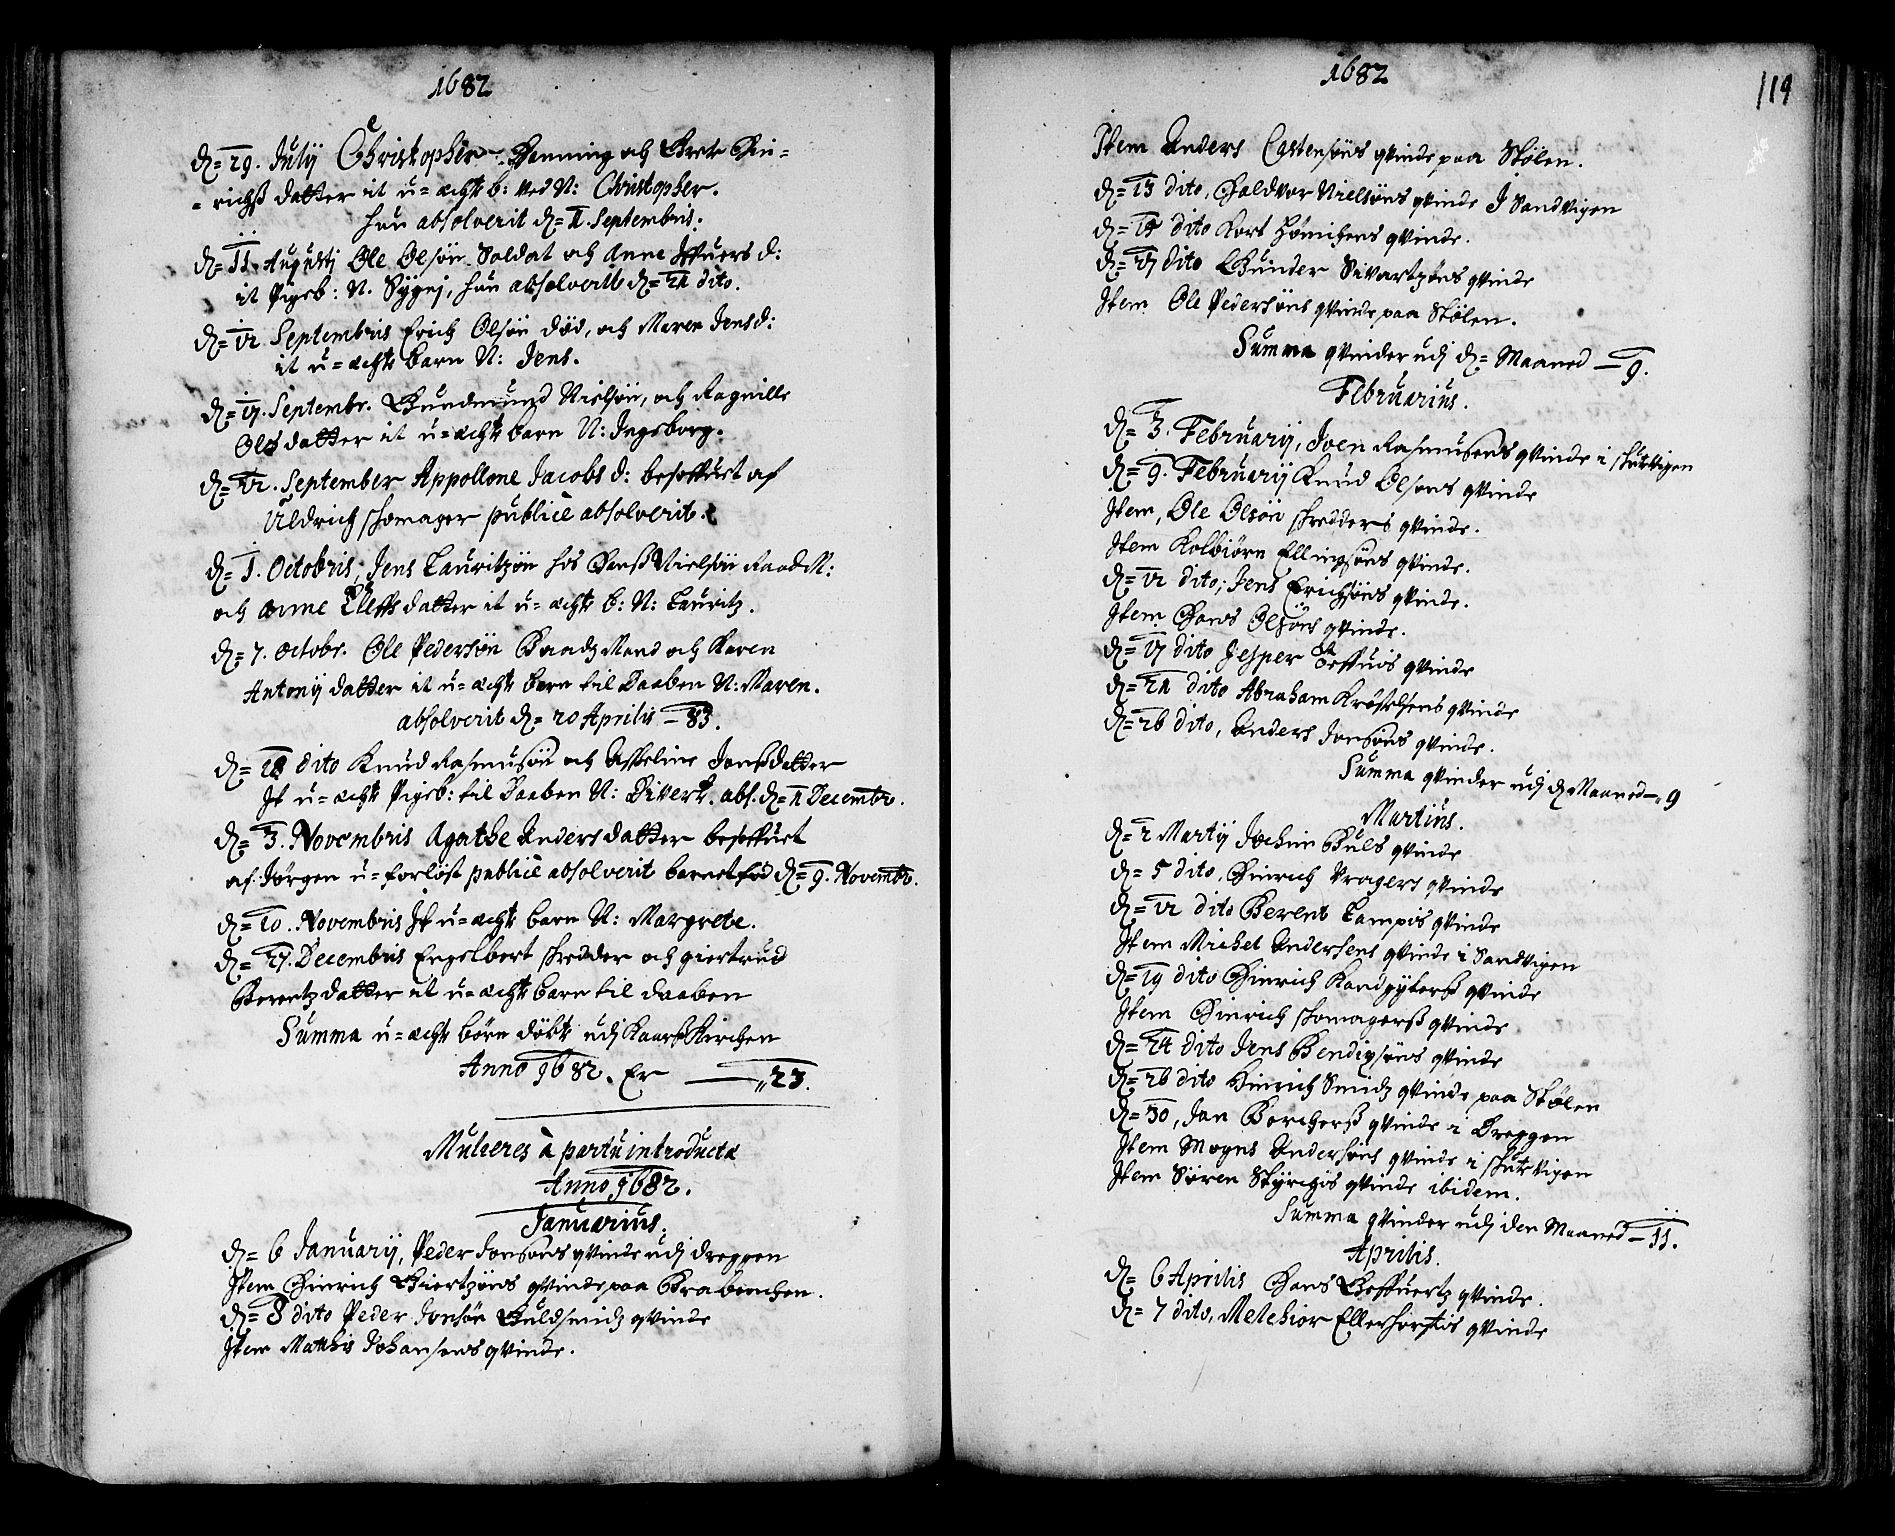 1682
D= 29. Julij Christopher Henning och Gret Hin=
= richs datter it u=ächte b: ved N: Christopher.
hun absolverit d= 11. Septembris.
D= 11. Augusti Ole Olsön Soldat och Anne Iffuers d:
it Pigeb: N. Sygnj, hun absolverit d= 24 dito.
D= 12. Septembris Erich Olsön död, och Maren Jensd:
it u=ächte barn N: Jens.
D= 17. Septembr. Gundmund Nielsön, och Ragnille
Olsdatter it u=ächte barn N: Ingeborg.
D= 12. September Appollone Jacobs d: besoffuet af
Uldrich skomager publicè absolverit.
D= 1. Octobris, Jens Lauritzön hos Hans Nielsön RaadM:
och Anne Eleffsdatter it u=ächte b: N: Lauritz.
D= 7. Octobr. Ole Pedersön Baadz Mand och Karen
Antonij datter it u=ächte barn til Daaben N: Maren.
absolverit d= 20 Aprilis – 83.
D= 28 dito Knud Rasmusön och Asseline Jonsdatter
It u=ächte Pigeb: til Daaben N: Divert. abs. d= 11 Decembr.
D= 3. Novembris Agathe Anders datter besoffuet
af Jörgen u=forlöst publicè absolverit barnet föd d= 9. Novembr.
D= 10. Novembris It u=ächte barn N: Margrete.
D= 27. Decembris Engelbert skredder och giertrud
Berentz datter it u=ächte barn til daaben
Summa u=ächte börn döbte udj Kaarskirchen
Anno 1682. Er — „23.
Mulieres à partu introductæ
Anno 1682.
Januarius.
D= 6 Januarij, Peder Jonsöns qvinde udj dreggen
Item Hinrich Giertzöns qvinde paa Brabenchen.
D= 8 dito Peder Jonsön Guldsmidz qvinde
Item Matthis Johansens qvinde.
1682
119
Item Anders Castensöns qvinde paa Stölen.
D= 13 dito, Haldvor Nielsöns qvinde J Sandvigen
D= 14 dito Kort Hömichens qvinde.
D= 17 dito Gunder Sivartzöns qvinde
Item Ole Pedersöns qvinde paa Stölen.
Summa qvinder udj d= Maaned – 9.
Februarius.
D= 3. Februarij, Joen Rasmusens qvinde i skutevigen
D= 9. Februarij Knud Olsens qvinde
Item, Ole Olsön skredders qvinde.
Item Kolbiörn Ellingsöns qvinde.
D= 12 dito; Jens Erichsöns qvinde.
Item Hans Olsöns qvinde.
D= 17 dito Jesper Steffuis qvinde
D= 24 dito Abraham Kröchens qvinde
D= 26 dito, Anders Jonsöns qvinde.
Summa qvinder udj d= Maaned – „9
Martius.
D= 2 Martij Jochim Buls qvinde
D= 5 dito, Hinrich Kragers qvinde
D= 12 dito Berent Lampis qvinde
Item Michel Andersens qvinde i Sandvigen
D= 19 dito Hinrich Kandgyters qvinde
Item Hinrich skomagers qvinde
D= 24 dito Jens Bendixsöns qvinde
D= 26 dito Hinrich Smidz qvinde paa Stölen
D= 30, Jan Borchers qvinde i Dreggen
Item Mogns Andersöns qvinde i skutevigen
Item Sören Styrchis qvinde ibidem.
Summa qvinder udj den Maaned – 11.
Aprilis.
D= 6 Aprilis Hans Geffuertz qvinde.
D= 7 dito, Melchior Ellerhorstis qvinde